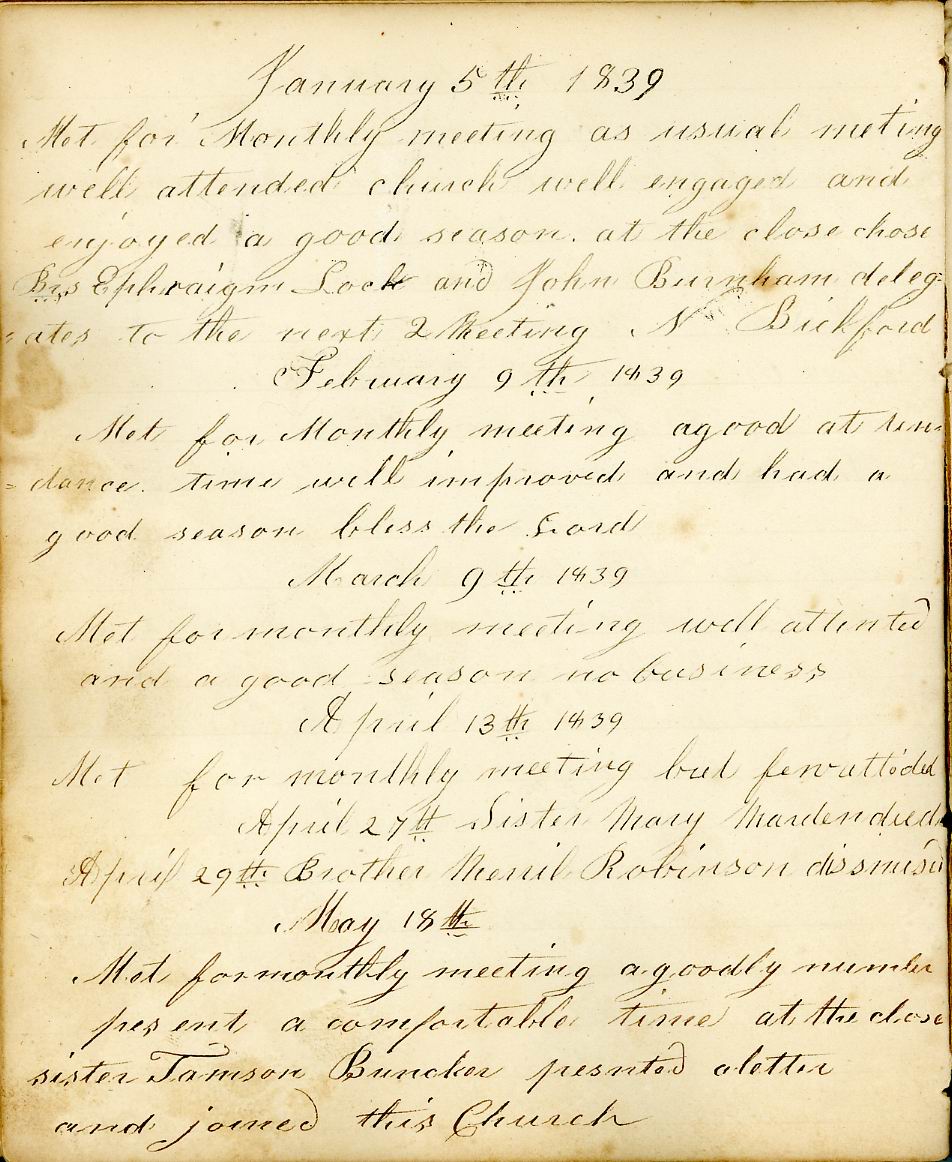 January 5th 1839
Met for Monthly meeting as usual meting
well attended church well engaged and
enjoyed a good season. at the close chose
Brs Ephraigm Lock and John Burnham deleg-
-ates to the next 2 Meeting N Bickford
February 9th 1839
Met for Monthly meeting agood at ten-
=dance. time well improved and had a
good season bless the Lord
March 9th 1839
Met for monthly meeting well attented
and a good season no business
April 13th 1839
Met for monthly meeting but few attoded
April 27th Sister Mary Marden died
April 29th Brother Merril Robinson dissmisd
May 18th
Met for monthly meeting a goodly number
pesent a comfortable time at the close
sister Tamson Buncker pesnted a letter
and joined this Church